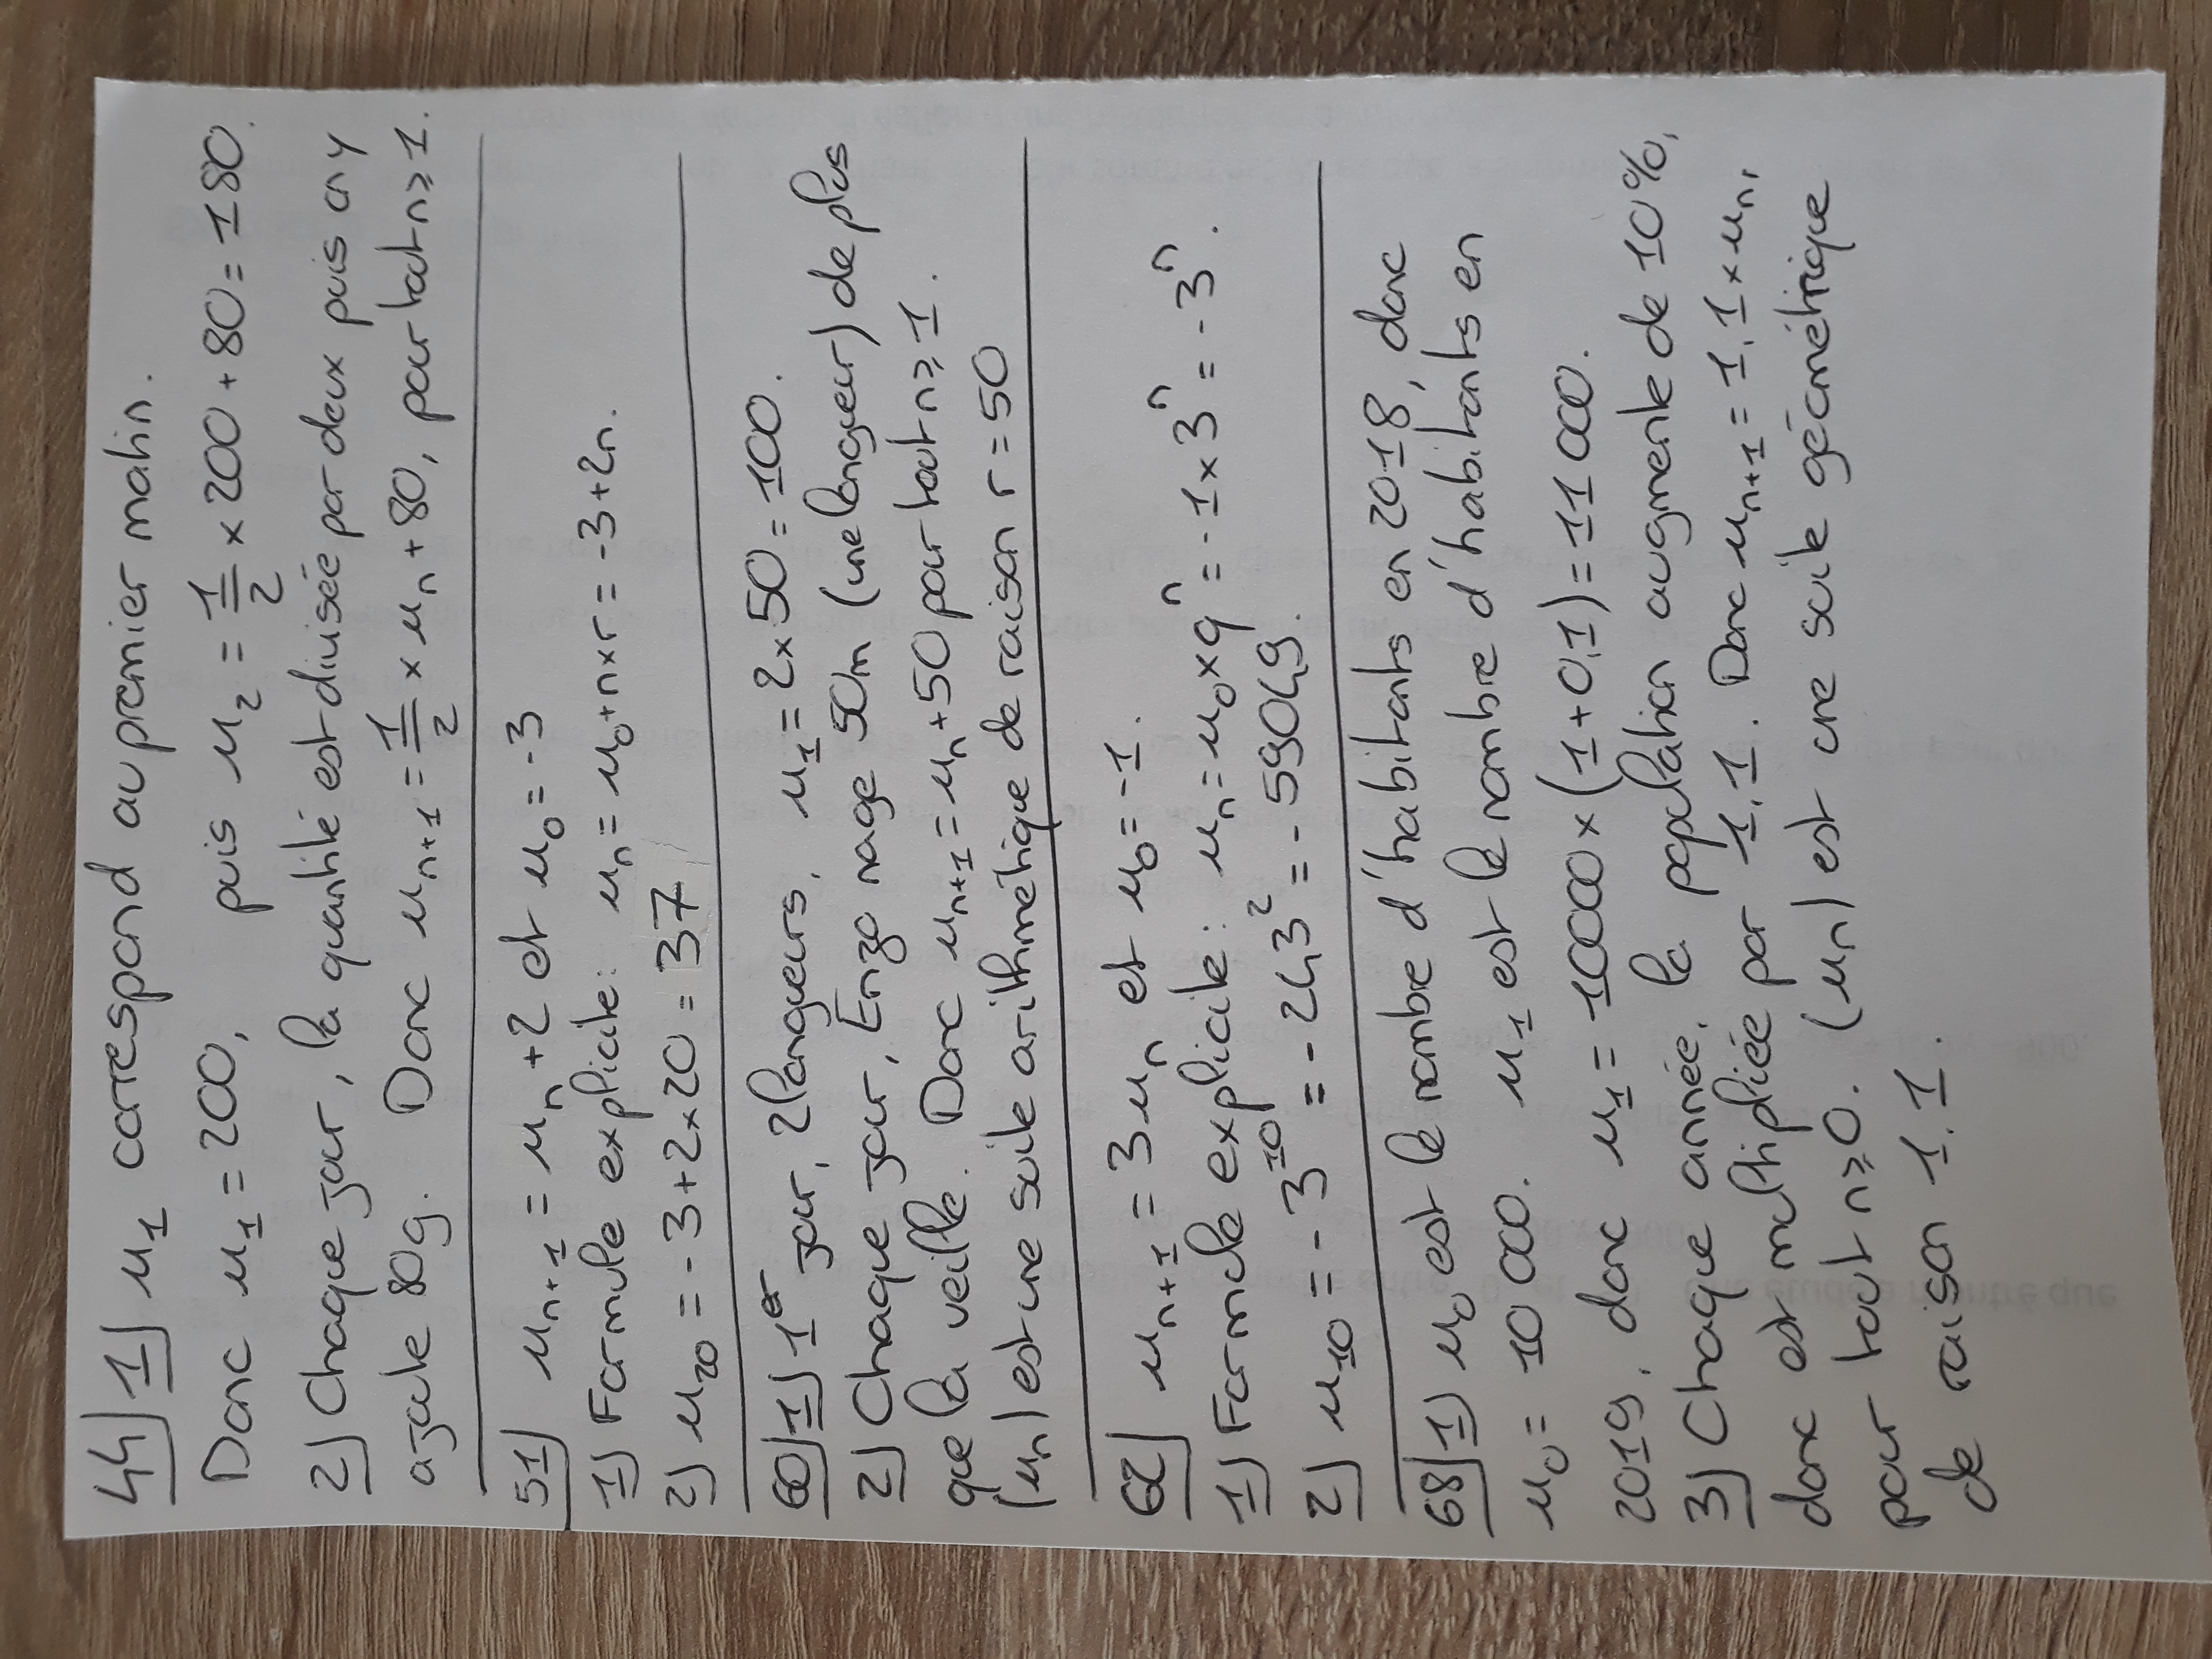 44) 1) u₁ correspond au premier matin.
Donc u₁ = 200, puis u₂ = 1/2 × 200 + 80 = 180.
2) Chaque jour, la quantité est divisée par deux puis on y
ajoute 80g. Donc uₙ₊₁ = 1/2 × uₙ + 80, pour tout n ⩾ 1.
51) uₙ₊₁ = uₙ + 2 et u₀ = -3
1) Formule explicite : uₙ = u₀ + n × r = -3 + 2n.
2) u₂₀ = -3 + 2 × 20 = 37
60) 1) 1er jour, 2 longueurs, u₁ = 2 × 50 = 100.
2) Chaque jour, Enzo nage 50m (une longueur) de plus
que la veille. Donc uₙ₊₁ = uₙ + 50 pour tout n ⩾ 1.
(uₙ) est une suite arithmétique de raison r = 50
62) uₙ₊₁ = 3uₙ et u₀ = -1.
1) Formule explicite : uₙ = u₀ × qⁿ = -1 × 3ⁿ = -3ⁿ.
2) u₁₀ = -3¹⁰ = -243² = -59049.
68) 1) u₀ est le nombre d'habitants en 2018, donc
u₀ = 10 000. u₁ est le nombre d'habitants en
2019, donc u₁ = 10000 × (1 + 0,1) = 11 000.
3) Chaque année, la population augmente de 10%,
donc est multipliée par 1,1. Donc uₙ₊₁ = 1,1 × uₙ,
pour tout n ⩾ 0. (uₙ) est une suite géométrique
de raison 1,1.